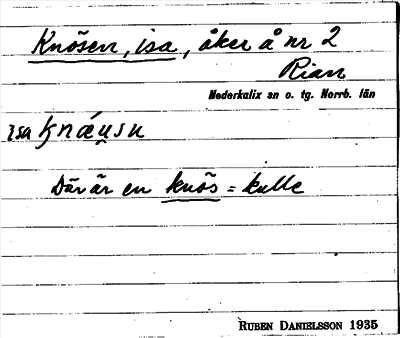 Knösen, isa, åker å nr 2
Rian
Nederkalix sn o. tg. Norrb. län
isa knǽu̯sn
Där är en knös = kulle
RUBEN DANIELSSON 1935